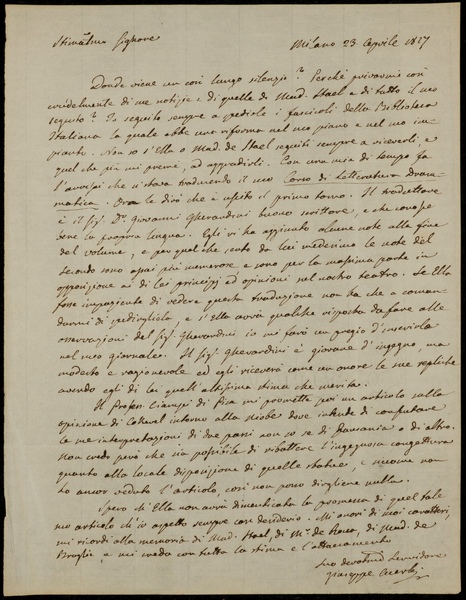 Stimatmo Signore
Milano 23 Aprile 1817
Donde viene un così lungo silenzio? Perchè privarmi così
crudelmente di sue notizie e di quelle di Mad. Stael e di tutto il suo
seguito? Io seguito sempre a spedirle i fascicoli della Biblioteca
Italiana la quale ebbe una riforma nel suo piano e nel suo im-
pianto. Non so s'Ella o Mad. de Stael seguiti sempre a riceverli, e
quel che più mi preme, ad aggradirli. Con una mia di tempo fa
l'avvisai che si stava traducendo il suo Corso di Letteratura dram-
matica. Ora le dirò che è uscito il primo tomo. Il traduttore
è il Sig. Dr. Giovanni Gherardini buono scrittore, e che conosce
bene la propria lingua. Egli vi ha aggiunto alcune note alla fine
del volume, e per quel che sento da lui medesimo le note del
secondo sono assai più numerose e sono per la massima parte in
opposizione ai di lei principj ed opinioni sul nostro teatro. Se Ella
fosse impaziente di vedere questa traduzione non ha che a coman-
darmi di spedirgliela, e s'ella avrà qualche risposta da fare alle
osservazioni del Sig. Gherardini io mi farò un pregio d'inserirla
nel mio giornale. Il Sig. Gherardini è giovane d'ingegno, ma
modesto e ragionevole ed egli riceverà come un onore le sue repliche
avendo egli di lei quell'altissima stima che merita.
Il Profess. Ciampi di Pisa mi promette poi un articolo sulla
opinione di intorno alla Niobe dove intende di confutare
le sue interpretazioni di due passi non so se di Pausania o di altro.
Non credo però che sia possibile di ribattere l'ingegnosa congettura
quanto alla locale disposizione di quelle statue, e siccome non
ho ancor veduto l'articolo, così non posso dirgliene nulla.
Spero ch'Ella non avrà dimenticata la promessa di quel tale
suo articolo ch'io aspetto sempre con desiderio. Mi onori di suoi caratteri,
mi ricordi alla memoria di Mad. Stael, di Mr. de Rocca, di Mad. de
Broglie, e mi creda con tutta la stima e l'attaccamento
Suo devotmo Servidore
Giuseppe Acerbi